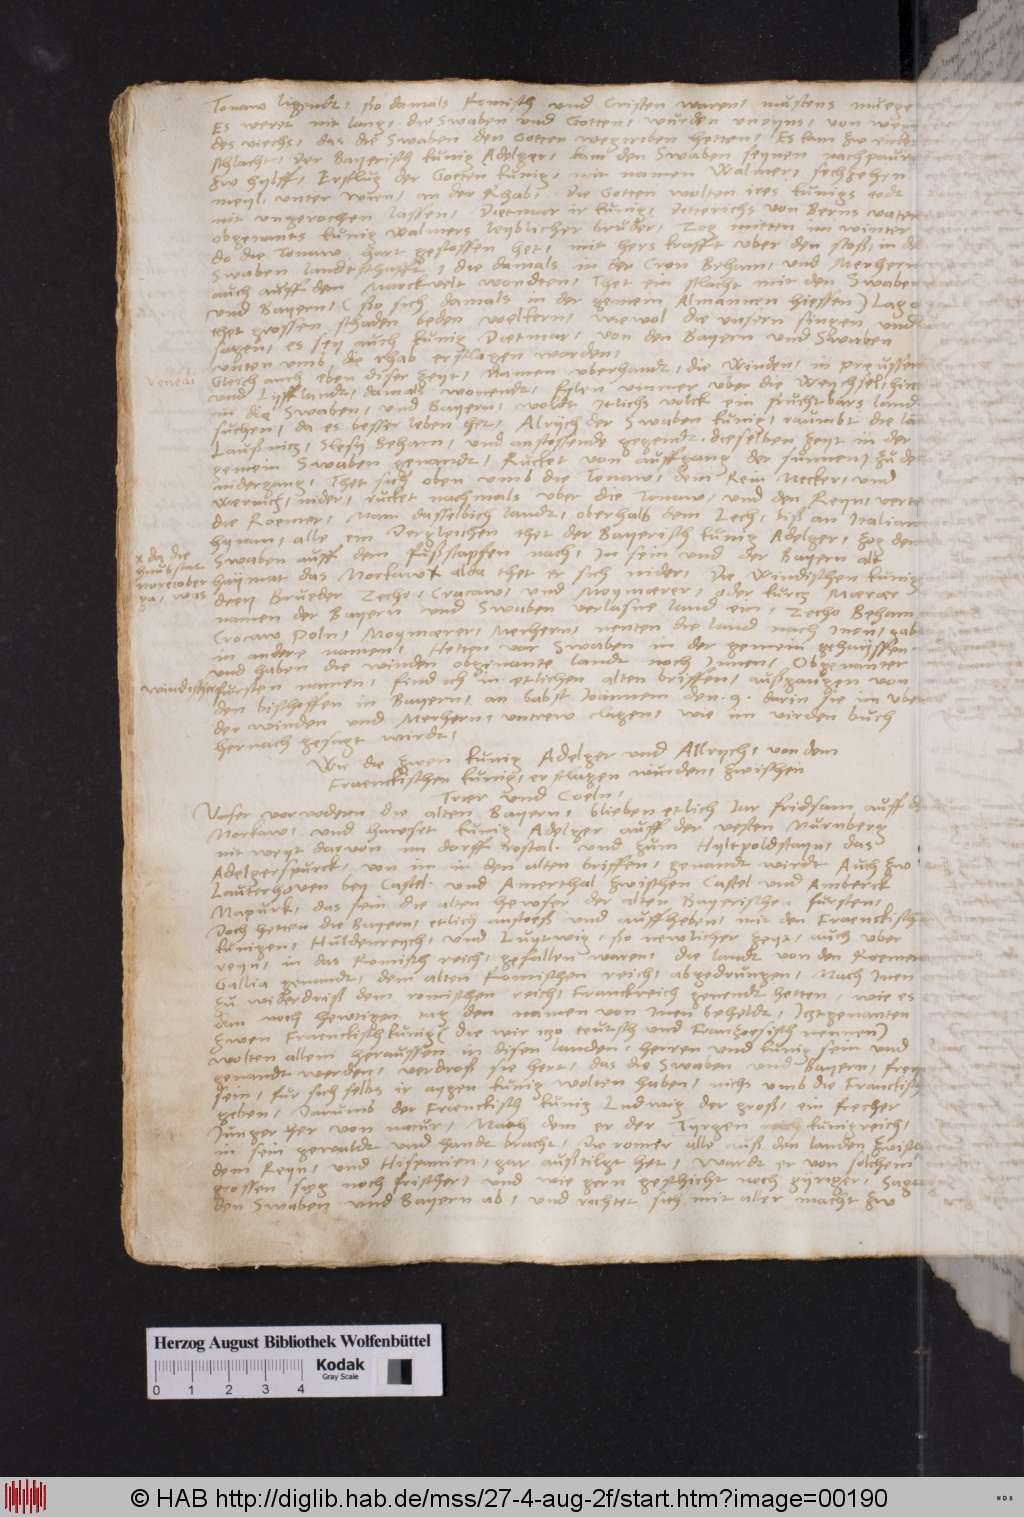 Tonaw ligendt, so damals Romisch und Cristen waren, mustens
Es weret nit lang, die Swaben und Gotten, wurden uneyns, von
des viechs, das die Swaben den Gotten wegtriben hetten, Es kam zw einer
schlacht, der Bayerisch kunig Adelger, kam den Swaben seynen nachpaurn
zw hylff, Erslug der Gotten kunig, mit namen Walmer, sechzehen
meyl, unter Wien, an der Rhab, Die Gotten wolten ires kunigs todt
nit ungerochen lassen, Dietmar ir kunig, Dietterichs von Berns vater
obgenants kunig Walmers leyblicher bruder, Zog mitten im winter
do die Tonaw hart gestossen het, mit hers krafft uber den stoß, in der
Swaben landtschafft, die damals in der Cron Beham, und Merhern
auch auff dem Marckvelt wondten, Thet ein slacht mit den Swaben
und Bayern, (so sich damals in der gemein Almannen hiessen)
thet grossen schaden beden voelkern, wiewol die unsern singen und
sagen, es sey auch kunig Dietmar, von den Bayern und Swaben
unten umb die rhab erslagen worden,
Venedi
Gleich auch eben diser zeyt, Namen uberhandt, die Winden, in preussen
und Lyfflandt, damals wonendt, fylen ymmer uber die Weychsel, hin
in die Swaben, und Bayern, wolds itlichs volck ein fruchtbars land
suchen, da es besser leben het, Alrych der Swaben kunig, raumbt die
Laußnicz, Slesy Beham, und anstossende gegendt, dieselben zeyt in der
gemein Swaben genandt, Rucket von auffgang der sunnen, zu
nidergang, Thet sich oben umb die Tonaw, dem Rein Necker, und
Wernich, nider, rucket nachmals uber die Tonaw, und den Reyn,
die Roemer, Nam dasselbich landt, oberhalb dem Lech, biß an Italiam
hynan, alle ein, Dergleichen thet der Bayerisch kunig Adelger, zog den
Swaben auff dem fußstapfen nach, In sein und der Bayern alt
x da die
haubstat
noreia ober
ga, was
haymat das Norkaw x alda thet er sich nider, Die Windischen kunig
drey Brueder Zecho, Cracaw, und Moymaerer, oder kurcz Maerer
namen der Bayern und Swaben verlasne land ein, Zecho Beham
Crocaw Poln, Moymaerer, Merhern, nenten die land nach inen, gab
in andere namen, Hetten vor Swaben in der gemein gehayssen,
und haben die winden obgenante landt noch innen, Obgenanter
windischen fursten namen, find ich in etlichen alten briffen, außgangen von
den bischoffen in Bayern, an babst Joannem den .9. darin sie im
der winden und Merhern, untrew clagen, wie im virden buch
hernach gesagt wirdt,
Wie die zwen kunig Adelger und Allrych, von dem
Fraenckischen kunig, erslagen wurden, zwischen
Trier und Coeln,
Unser vorvodern die alten Bayern, blieben etlich Jar fridsam auff
Norkaw, und hawset kunig Adelger auff der vesten Nurnberg
nit weyt davon im dorff rostal, und zum Hyltpoldstayn, das
Adelgerspurck, von im in den alten briffen, genandt wirdt Auch zw
Lauterhoven bey Castel, und Amerthal zwischen Castel und Amberck
Napurk, das sein die alten hewser der alten Bayerischen fursten,
Doch hetten die Bayern, etlich anstoeß und auffheben, mit den Fraenckisch
kunigen, Huldenreych, und Luytwig, so newlicher zeyt, auch uber
reyn, in das Romisch reich, gefallen waren, die landt von den Roemern
Gallia genandt, dem alten Romischen reich, abgedrungen, Nach inen
zu widerdriß dem romischen reich, Franckreich genendt hetten, wie es
dan noch hewtigen tag den namen von inen beheldt, Iczgenanten
zwen Fraenckisch kunig (die wir iczo teutsch und Franczoesisch nennen)
wolten allein heraussen in disen landen, herren und kunig sein und
genandt werden, verdroß sie hert, das die Swaben und Bayern, frey
sein, fur sich selbs ir aygen kunig wolten haben, nichts umb die Franckisch
geben, Darumb der Fraenckisch kunig Ludwig der groß, ein frecher
Junger her von natur, Nach dem er der Tyrgen kunigreich,
in sein gewaldt und handt bracht, Die romer alle auß den landen zwischen
dem Reyn, und Hispanien, gar außtilgt het, Wardt er von solchem
grossen sieg noch frischer, und wie gern geschicht noch gyriger, sagt
den Swaben und Bayern ab, und richtet sich mit aller macht zw
Herzog August Bibliothek Wolfenbüttel
0 1 2 3 4
Kodak
Gray Scale
© HAB http://diglib.hab.de/mss/27-4-aug-2f/start.htm?image=00190
WDB